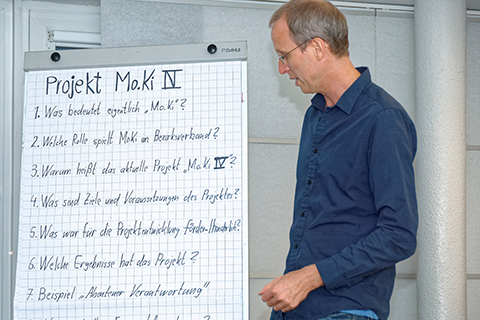 Projekt Mo.Ki IV
1. Was bedeutet eigentlich „Mo.Ki"?
2. Welche Rolle spielt MoKi im Bezirksverband?
3. Warum heißt das aktuelle Projekt „Mo.Ki IV"?
4. Was sind Ziele und Voraussetzungen des Projektes?
5. Was war für die Projektentwicklung förder-/hinderlich?
6. Welche Ergebnisse hat das Projekt?
7. Beispiel „Abenteuer Verantwortung"